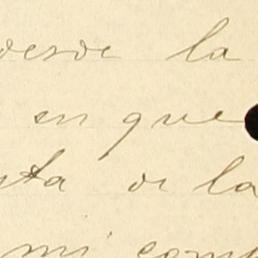 desde la
en que
ta de la
mi comp